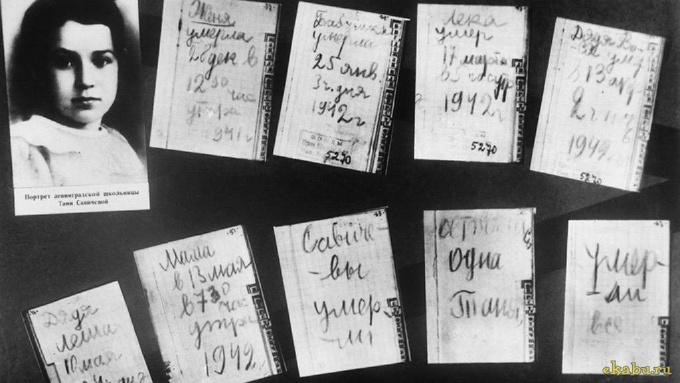 Женя
умерла
28 дек в
12 30
час
утра
1941 г
Бабушка
умерла
25 янв.
3 ч. дня
1942 г
5270
Лека
умер
17 марта
в 5 час утр
1942 г
5270
Дядя Ва-
умер
в 13 апр
2 ч
1942 г
5270
Портрет ленинградской школьницы
Тани Савичевой
Дядя
Леша
10 мая
Мама
в 13 мая
в 7 30
час
утра
1942 г
Савиче-
-вы
умер-
-ли
одна
Таня
умер-
-ли
все
ekabu.ru